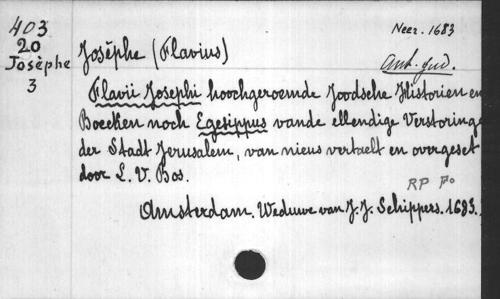 403
20
Josèphe
3
Neer. 1683
Josèphe (Flavius)
Ant. jud.
Flavii Josephi hoochgeroemde Joodsche Historien en
Boecken noch Egesippus vande ellendige Verstoringe
der Stadt Jerusalem, van nieus vertaelt en overgeset
door L. V. Bos.
RP Fo
Amsterdam. Weduwe van J. J. Schippers. 1683.